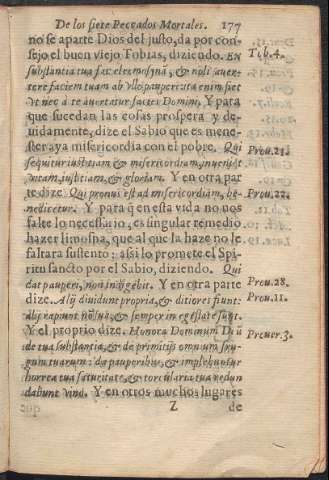 De los siete Peccados Mortales. 177
no se aparte Dios del justo, da por con-
sejo el buen viejo Tobias, diziendo. EN Tob. 4.
substantia tua fac eleemosynã, & noli auer-
tere faciem tuam ab vllo paupere: ita enim fiet
vt nec à te auertatur facies Domini. Y para
que sucedan las cosas prospera y de-
uidamente, dize el Sabio que es mene-
ster aya misericordia con el pobre. Qui Prou. 21.
sequitur iustitiam, & misericordiam, inueniet
vitam, iustitiam, & gloriam. Y en otra par
te dize. Qui pronus est ad misericordiam, be- Prou. 22.
nedicetur. Y para q̃ en esta vida no nos
falte lo necessario, es singular remedio
hazer limosna, que al que la haze no le
faltara sustento: assi lo promete el Spi-
ritu sancto por el Sabio, diziendo. Qui
dat pauperi, non indigebit. Y en otra parte Prou. 28.
dize. Alij diuidunt propria, & ditiores fiunt: Prou. 11.
alij rapiunt nõ sua, & semper in egestate sunt.
Y el proprio dize. Honora Dominum Deũ Prouer. 3.
de tua substantia, & de primitijs omnium fru-
gum tuarum: da pauperibus, & implebuntur
horrea tua saturitate, & torcularia tua redun
dabunt vino. Y en otros muchos lugares
Z de